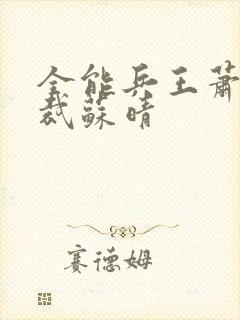 全能兵王萧
裁苏晴
赛德姆